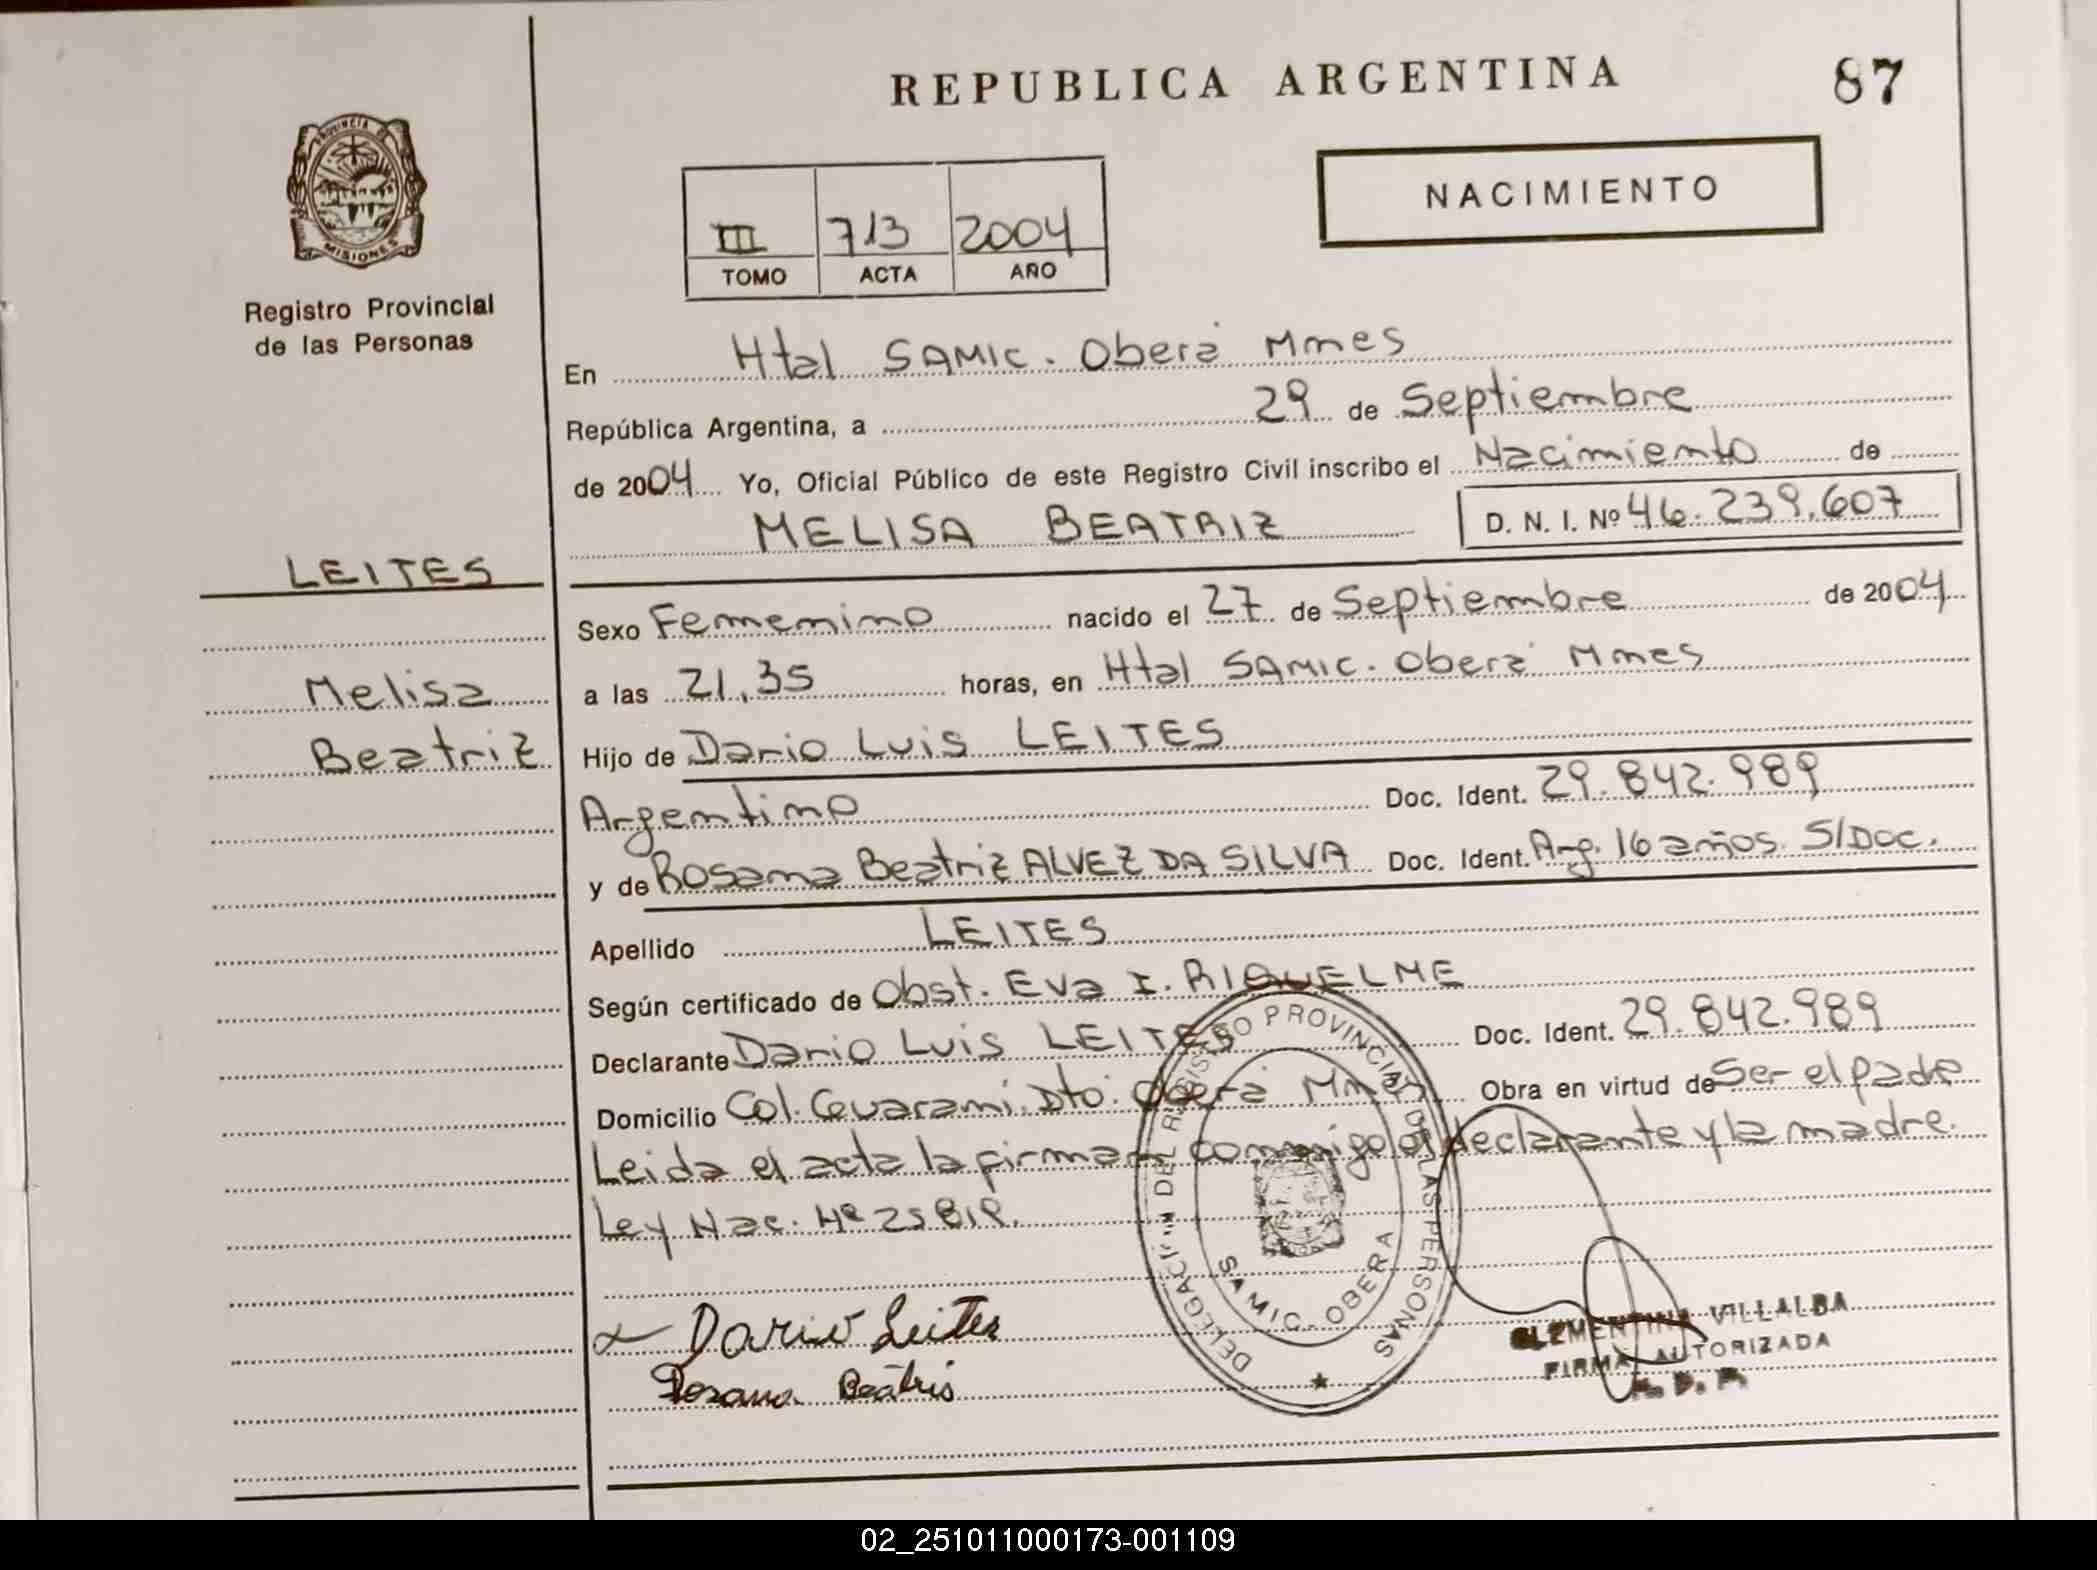 REPUBLICA ARGENTINA
87
NACIMIENTO
III 713 2004
TOMO ACTA AÑO
PROVINCIA DE MISIONES
Registro Provincial
de las Personas
En Htal SAMIC. Oberá Mnes
República Argentina, a 29 de Septiembre
de 2004 Yo, Oficial Público de este Registro Civil inscribo el Nacimiento de
MELISA BEATRIZ D. N. I. Nº 46.239.607
LEITES
Melisa
Beatriz
Sexo Femenino nacido el 27 de Septiembre de 2004
a las 21,35 horas, en Htal SAMIC. Oberá Mnes
Hijo de Dario Luis LEITES
Argentino Doc. Ident. 29.842.989
y de Rosana Beatriz ALVEZ DA SILVA Doc. Ident. Arg. 16 años. S/Doc.
Apellido LEITES
Según certificado de Obst. Eva I. RIQUELME
Declarante Dario Luis LEITES Doc. Ident. 29.842.989
Domicilio Col. Guarani. Dto. Oberá Mnes Obra en virtud de Ser el padre
Leida el acta la firman conmigo el declarante y la madre.
Ley Nac. Nº 25819.
Dario Leites
Rosana Beatris
DELEGACION DEL REGISTRO PROVINCIAL DE LAS PERSONAS
SAMIC - OBERA
CLEMENTINA VILLALBA
FIRMA AUTORIZADA
02_251011000173-001109